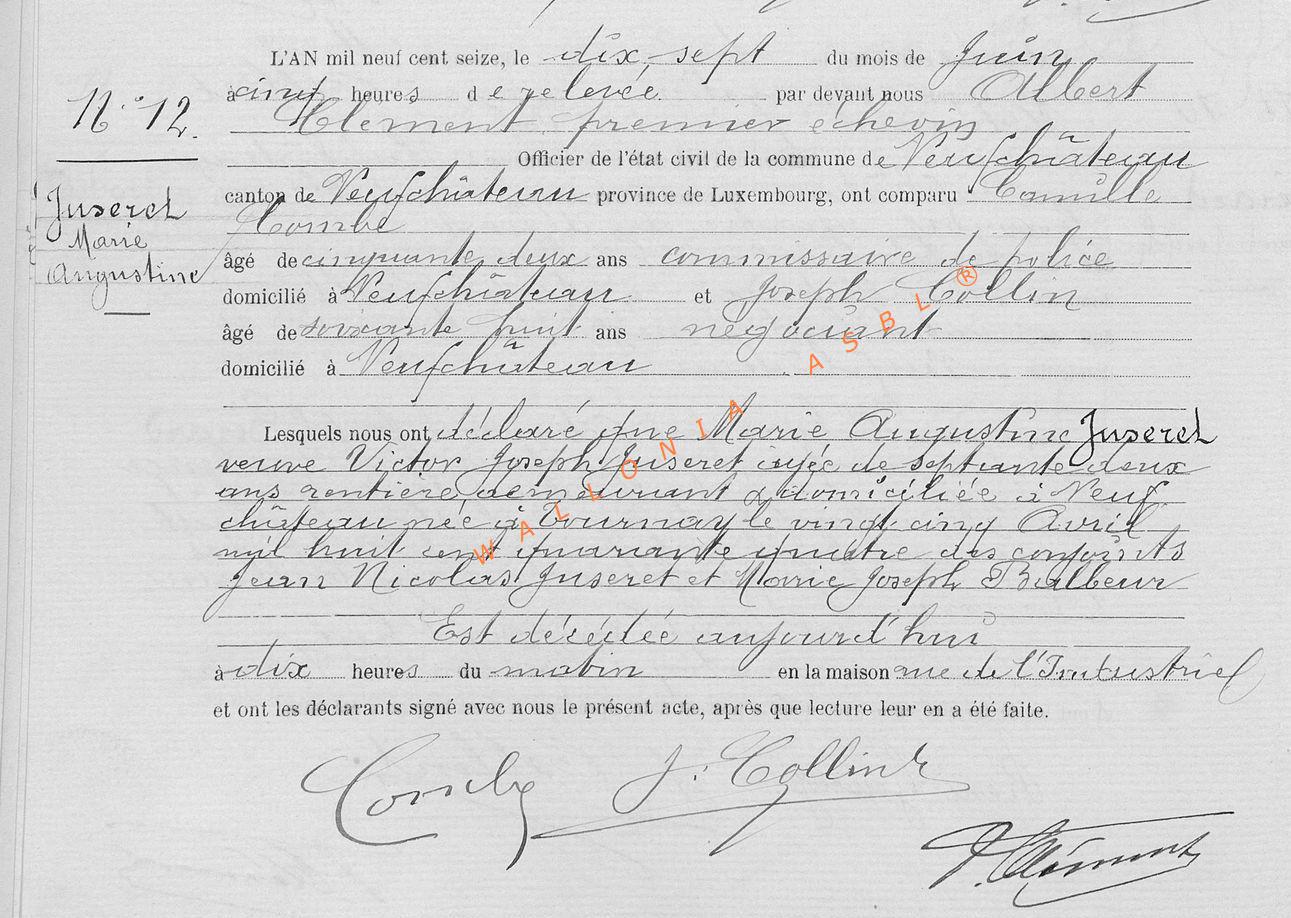 L'AN mil neuf cent seize, le dix-sept du mois de Juin
à cinq heures de relevée par devant nous Albert
N° 12.
Clement premier échevin
Officier de l'état civil de la commune de Neufchâteau
canton de Neufchâteau province de Luxembourg, ont comparu Camille
Juseret
Marie
Augustine
Combe
âgé de cinquante deux ans commissaire de police
domicilié à Neufchâteau et Joseph Collin
âgé de soixante huit ans négociant
domicilié à Neufchâteau
Lesquels nous ont déclaré que Marie Augustine Juseret
veuve Victor Joseph Juseret agée de septante deux
ans rentière demeurant & domiciliée à Neuf
château née à Tournay le vingt cinq Avril
mil huit cent quarante quatre des conjoints
Jean Nicolas Juseret et Marie Joseph Balbeur
Est décédée aujourd'hui
à dix heures du matin en la maison rue de l'Industriel
et ont les déclarants signé avec nous le présent acte, après que lecture leur en a été faite.
Combe J. Collin
A. Clément
WALLONIA ASBL ®